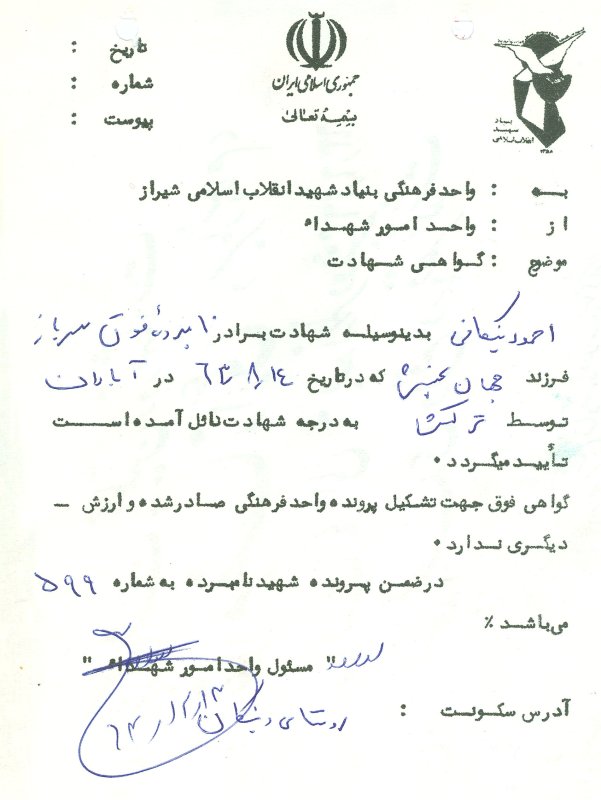 جمهوری اسلامی ایران
بسمه تعالی
تاریخ :
شماره :
پیوست :
بنیاد
شهید
انقلاب اسلامی
۱۳۵۸
به : واحد فرهنگی بنیاد شهید انقلاب اسلامی شیراز
از : واحد امور شهداء
موضوع : گواهی شهادت
بدینوسیله شهادت برادر نامبرده فوق سرباز
فرزند جهان بخش که در تاریخ ۶۳/۸/۱۴ در
توسط ترکش به درجه شهادت نائل آمده است
تأیید میگردد .
گواهی فوق جهت تشکیل پرونده واحد فرهنگی صادر شده و ارزش -
دیگری ندارد .
در ضمن پرونده شهید نامبرده به شماره ۵۹۹
می‌باشد ٪
" مسئول واحد امور شهداء "
آدرس سکونت : روستای